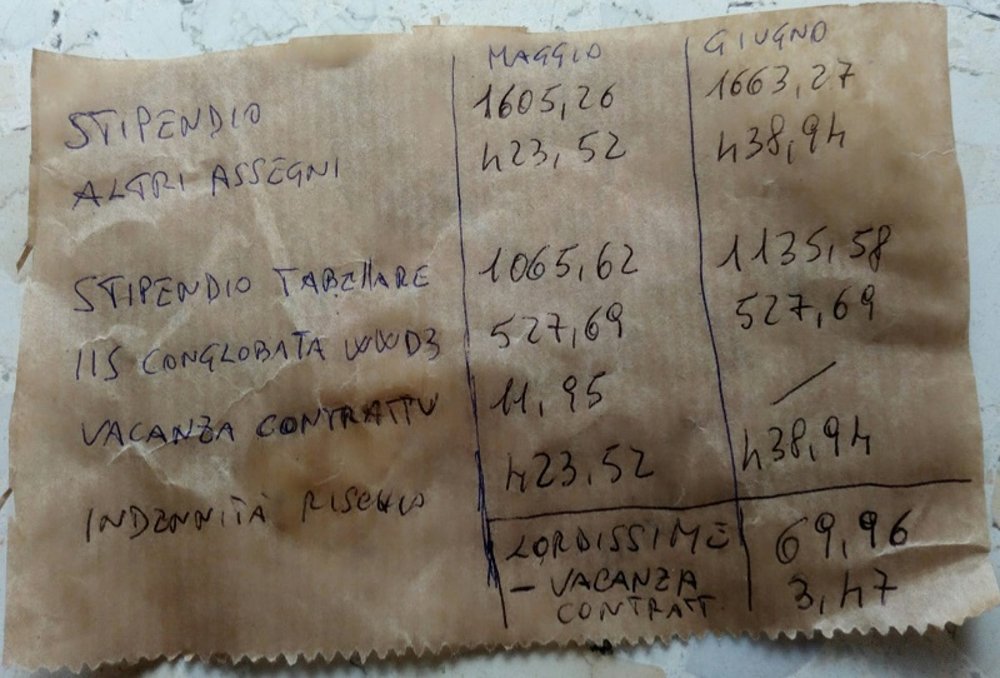 MAGGIO GIUGNO
STIPENDIO 1605,26 1663,27
ALTRI ASSEGNI 423,52 438,94
STIPENDIO TABELLARE 1065,62 1135,58
IIS CONGLOBATA 527,69 527,69
VACANZA CONTRATTU 11,95 /
INDENNITÀ RISCHIO 423,52 438,94
LORDISSIME 69,96
- VACANZA 3,47
CONTRATT